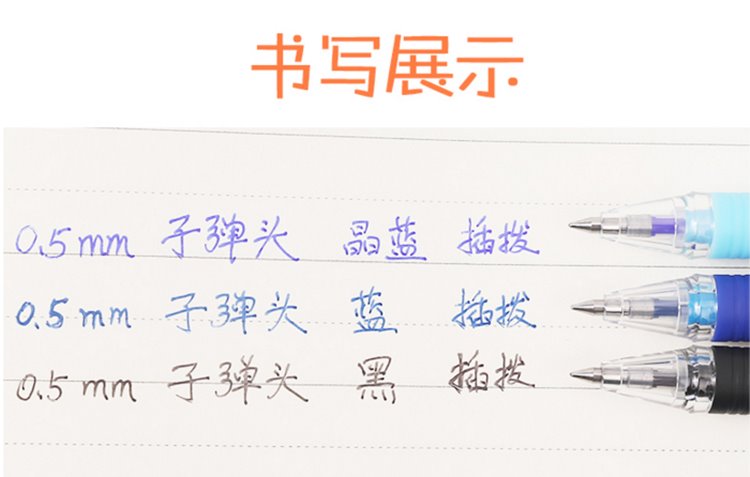 书写展示
0.5mm 子弹头 晶蓝 插拨
0.5mm 子弹头 蓝 插拨
0.5mm 子弹头 黑 插拨